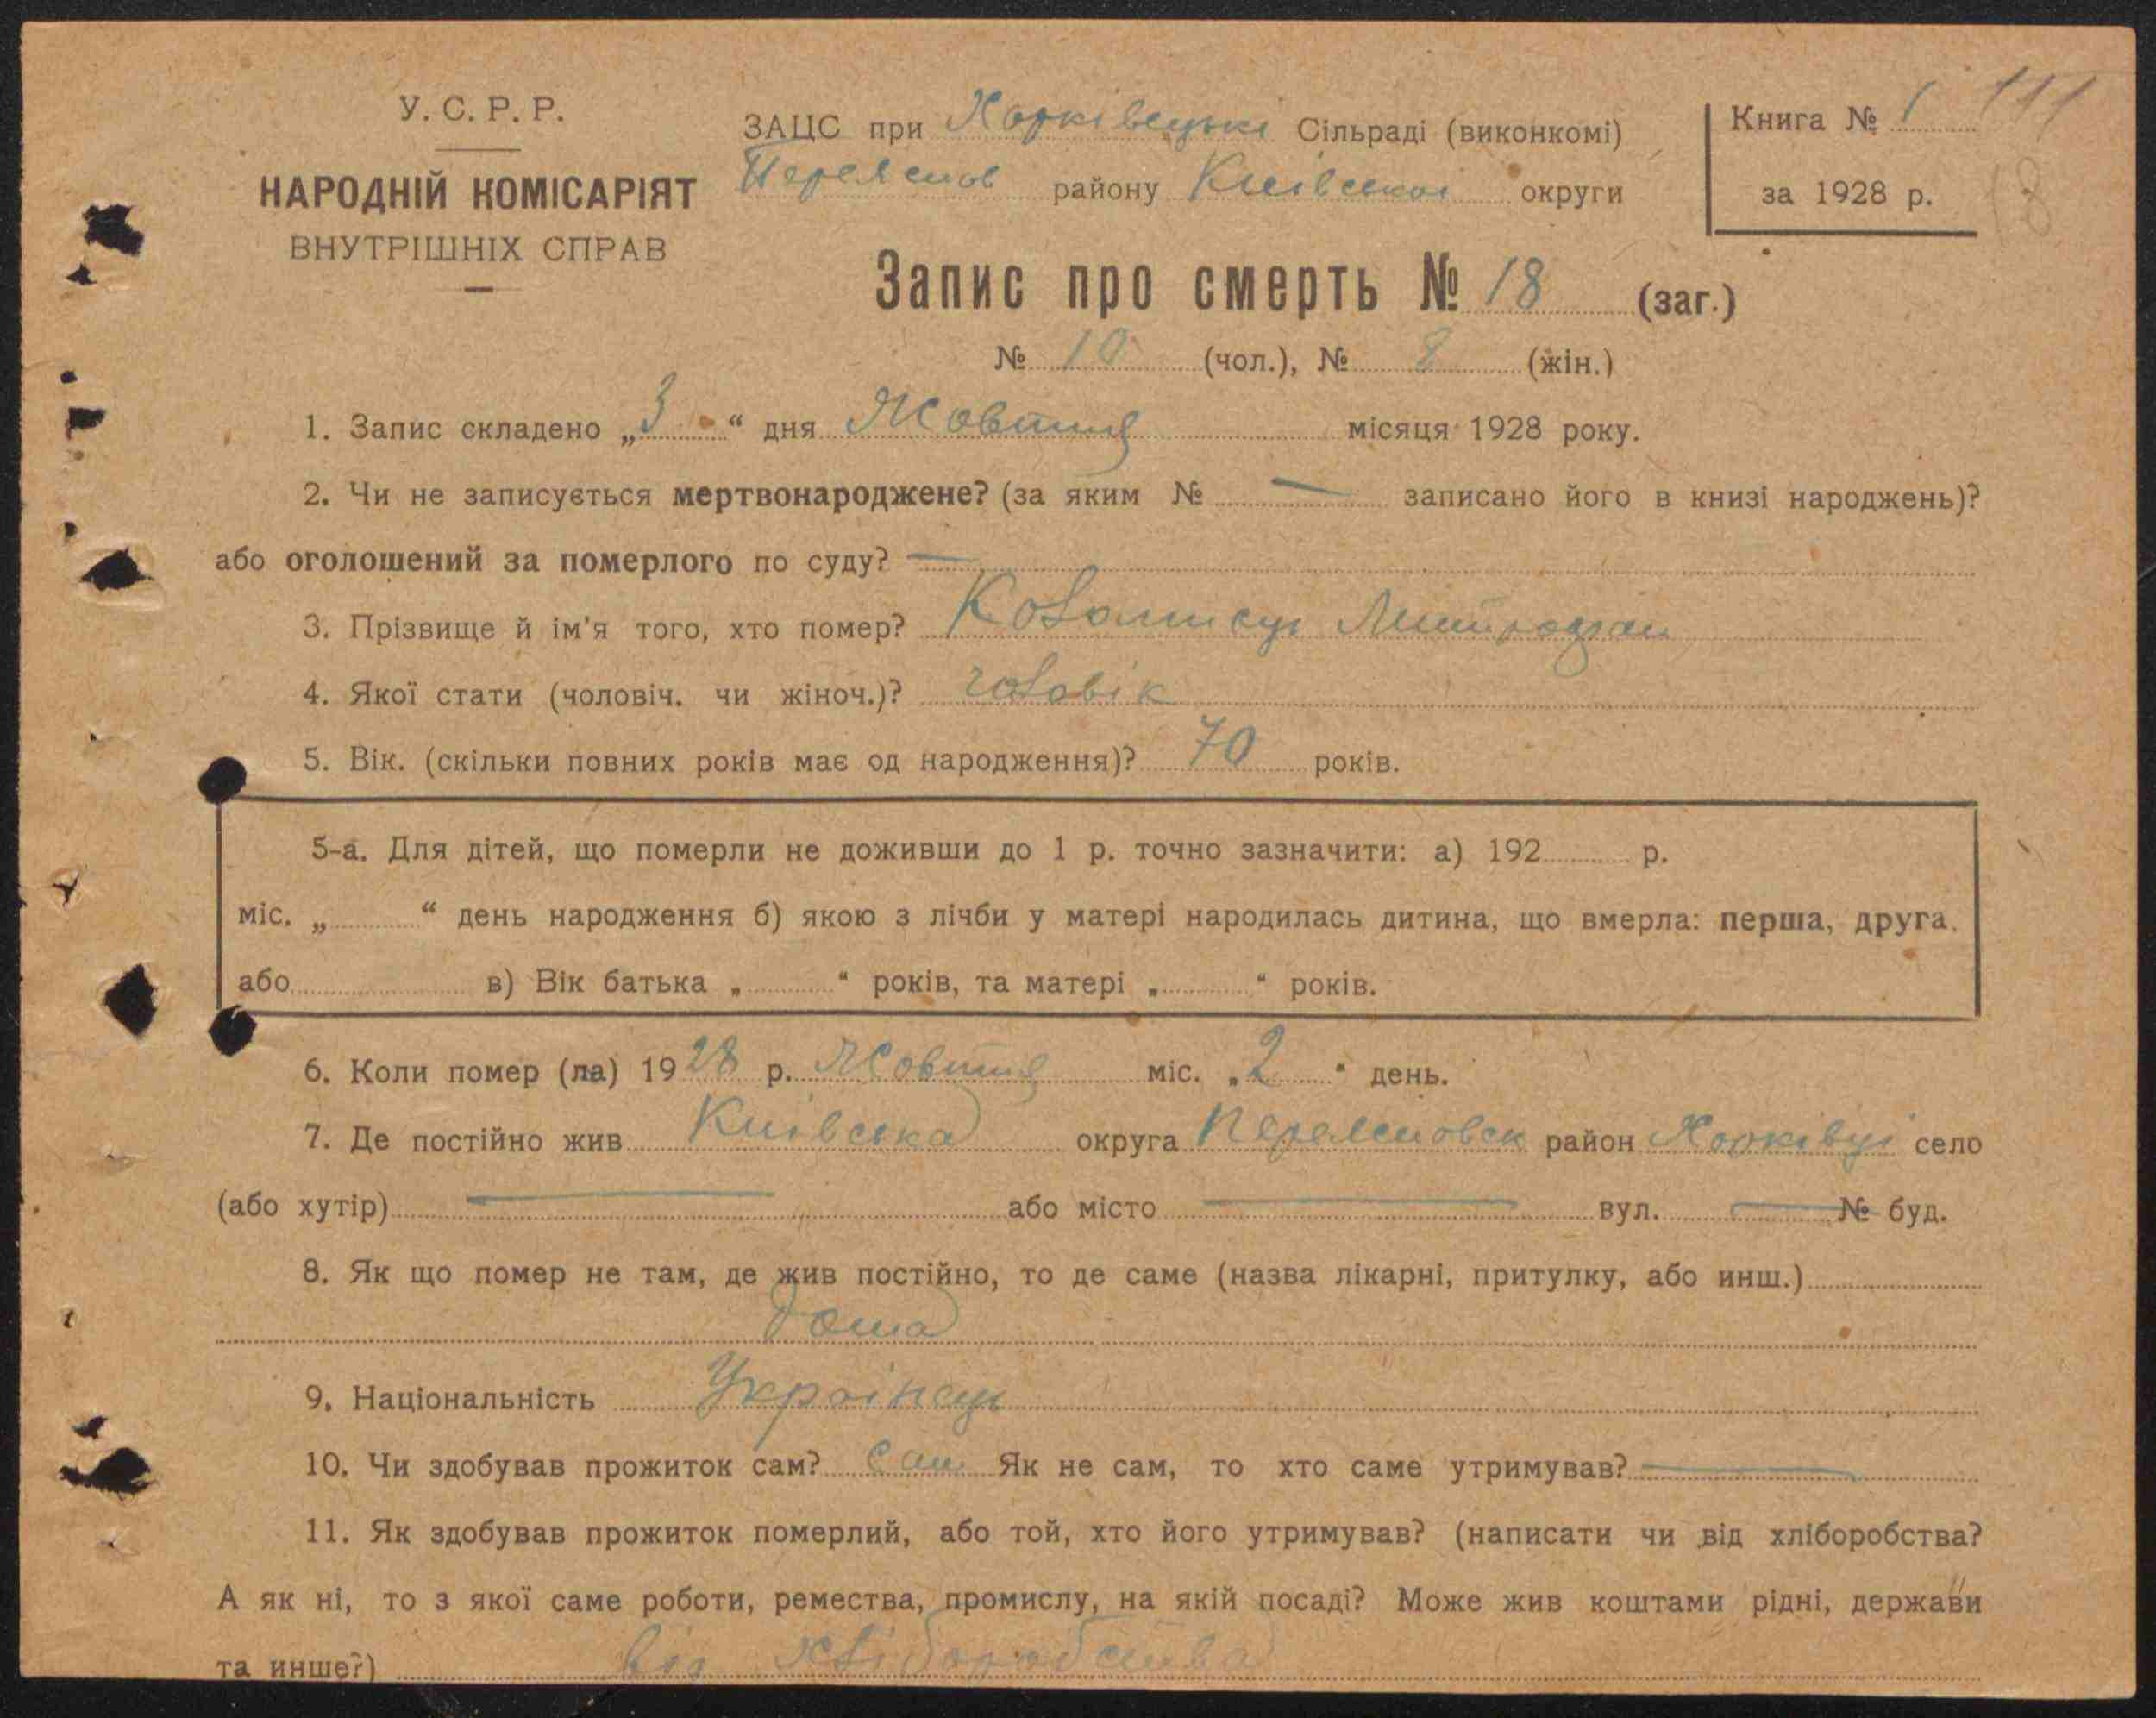 У. С. Р. Р.
НАРОДНІЙ КОМІСАРІЯТ
ВНУТРІШНІХ СПРАВ
ЗАЦС при Харківецькі Сільраді (виконкомі)
Переяслов району Київської округи
Книга № 1 111
за 1928 р. 18
Запис про смерть № 18 (заг.)
№ 10 (чол.), № 8 (жін.)
1. Запис складено „3“ дня Жовтня місяця 1928 року.
2. Чи не записується мертвонароджене? (за яким № — записано його в книзі народжень)?
або оголошений за померлого по суду? —
3. Прізвище й ім'я того, хто помер? Митрофан
4. Якої стати (чоловіч. чи жіноч.)? чоловік
5. Вік. (скільки повних років має од народження)? 70 років.
5-а. Для дітей, що померли не доживши до 1 р. точно зазначити: а) 192 р.
міс. „ “ день народження б) якою з лічби у матері народилась дитина, що вмерла: перша, друга,
або в) Вік батька „ “ років, та матері „ “ років.
6. Коли помер (ла) 1928 р. Жовтня міс. „2“ день.
7. Де постійно жив Київська округа Переясловск район Харківці село
(або хутір) — або місто — вул. — № буд.
8. Як що помер не там, де жив постійно, то де саме (назва лікарні, притулку, або инш.)
дома
9. Національність Українець
10. Чи здобував прожиток сам? Сам Як не сам, то хто саме утримував? —
11. Як здобував прожиток померлий, або той, хто його утримував? (написати чи від хліборобства?
А як ні, то з якої саме роботи, ремества, промислу, на якій посаді? Може жив коштами рідні, держави
та инше?) від хліборобства